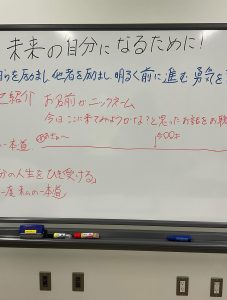 未来の自分になるために!
自分を励まし 他者を励まし 明るく前に進む 勇気を
己紹介 お名前かニックネーム
今日ここに来てみようかな?と思ったお話をお
の一本道
分の人生をひき受ける。
一度 私の一本道